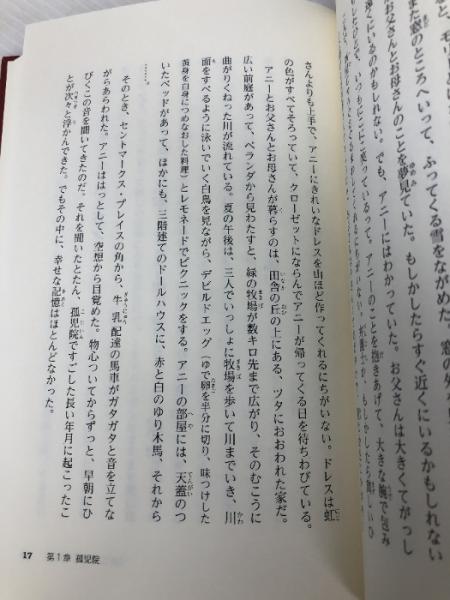 と、モリ
また窓のところへいって、ふってくる雪をながめた。窓の外を
お父さんとお母さんのことを夢見ていた。もしかしたらすぐ近くにいるかもしれない
遠くにいるのかもしれない。でも、アニーにはわかっていた。お父さんは大きくてがっし
さんよりも上手で、アニーにきれいなドレスを山ほど作ってくれるにちがいない。ドレスは虹
の色がすべてそろっていて、クローゼットにならんでアニーが帰ってくる日を待ちわびている。
アニーとお父さんとお母さんが暮らすのは、田舎の丘の上にある、ツタにおおわれた家だ。
広い前庭があって、ベランダから見わたすと、緑の牧場が数キロ先まで広がり、そのむこうに
曲がりくねった川が流れている。夏の午後は、三人でいっしょに牧場を歩いて川までいき、川
面をすべるように泳いでいく白鳥を見ながら、デビルドエッグ(ゆで卵を半分に切り、味つけした
黄身を白身につめなおした料理)とレモネードでピクニックをする。アニーの部屋には、天蓋のつ
いたベッドがあって、ほかにも、三階建てのドールハウスに、赤と白のゆり木馬、それから
……。
そのとき、セントマークス・プレイスの角から、牛乳配達の馬車がガタガタと音を立てな
がらあらわれた。アニーははっとして、空想から目覚めた。物心ついてからずっと、早朝にひ
びくこの音を聞いてきたのだ。それを聞いたとたん、孤児院ですごした長い年月に起こったこ
とが次々と浮かんできた。でもその中に、幸せな記憶はほとんどなかった。
17 第1章 孤児院